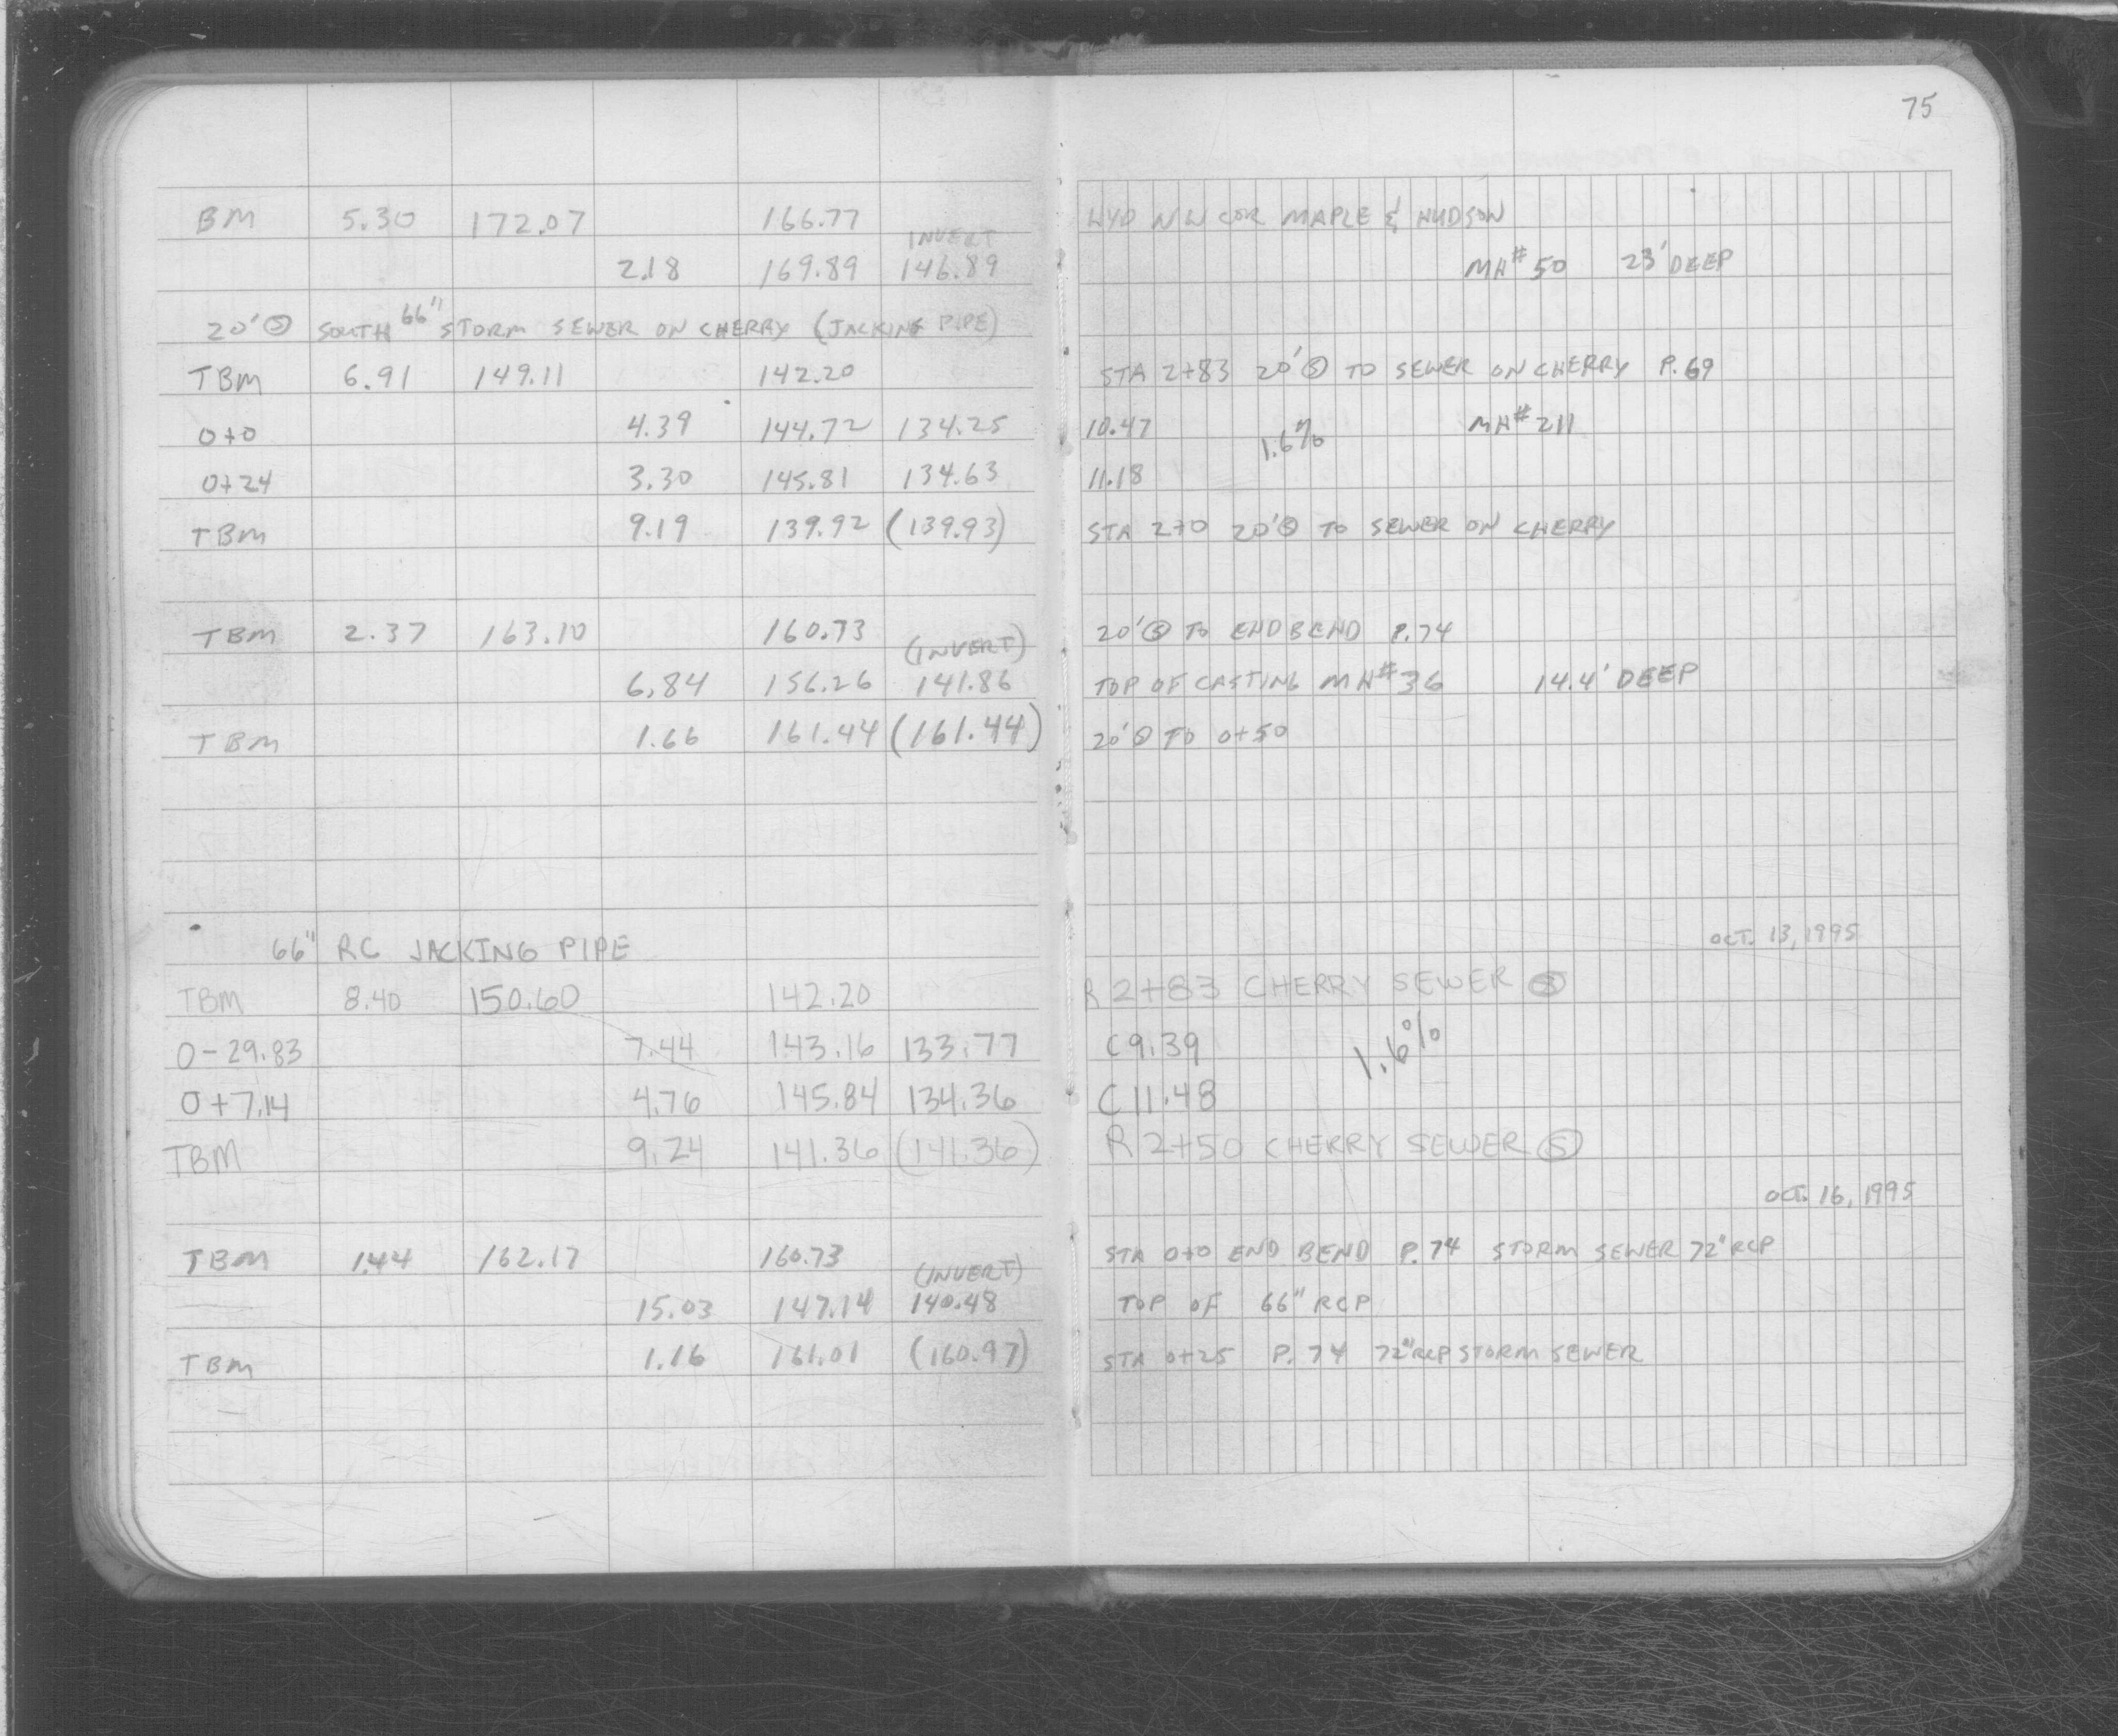 75
BM 5.30 172.07 166.77 HYD NW COR MAPLE & HUDSON
INVERT
2.18 169.89 146.89 MH# 50 23' DEEP
20' Ⓢ SOUTH 66" STORM SEWER ON CHERRY (JACKING PIPE)
TBM 6.91 149.11 142.20 STA 2+83 20' Ⓢ TO SEWER ON CHERRY P.69
0+0 4.39 144.72 134.25 10.47 1.6% MH# 211
0+24 3.30 145.81 134.63 11.18
TBM 9.19 139.92 (139.93) STA 2+0 20' Ⓢ TO SEWER ON CHERRY
TBM 2.37 163.10 160.73 20' Ⓢ TO END BEND P.74
(INVERT)
6.84 156.26 141.86 TOP OF CASTING MH# 36 14.4' DEEP
TBM 1.66 161.44 (161.44) 20' Ⓢ TO 0+50
OCT. 13, 1995
66" RC JACKING PIPE
TBM 8.40 150.60 142.20 R 2+83 CHERRY SEWER Ⓢ
0-29.83 7.44 143.16 133.77 C 9.39 1.6%
0+7.14 4.76 145.84 134.36 C 11.48
TBM 9.24 141.36 (141.36) R 2+50 CHERRY SEWER Ⓢ
OCT. 16, 1995
TBM 1.44 162.17 160.73 STA 0+0 END BEND P.74 STORM SEWER 72" RCP
(INVERT)
15.03 147.14 140.48 TOP OF 66" RCP
TBM 1.16 161.01 (160.97) STA 0+25 P. 74 72" RCP STORM SEWER